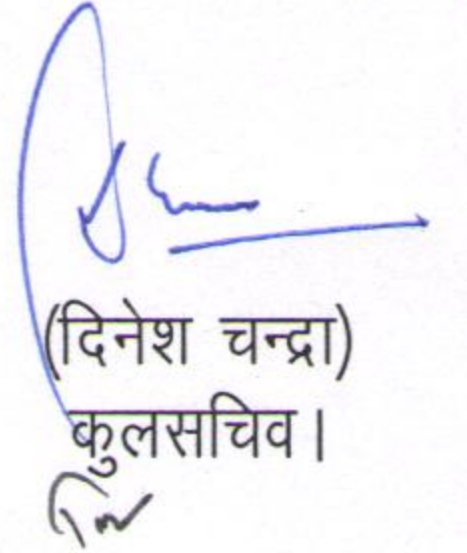 (दिनेश चन्द्रा)
कुलसचिव।